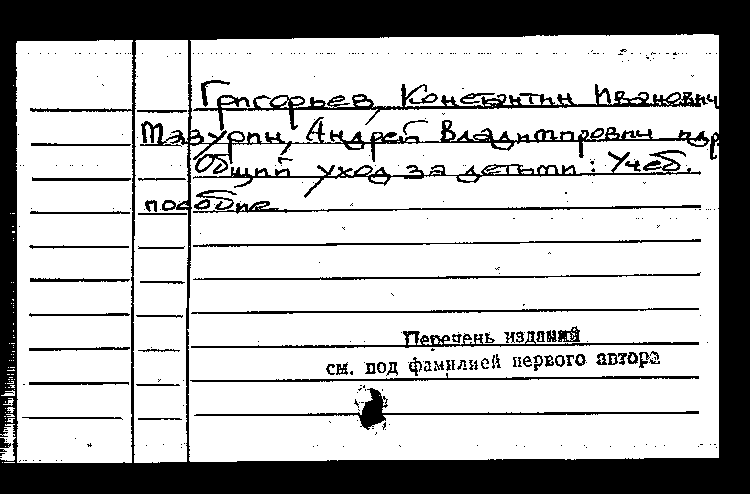 Григорьев, Константин Иванович
Мазурин, Андрей Владимирович
Общий уход за детьми: Учеб.
пособие.
Перечень изданий
см. под фамилией первого автора